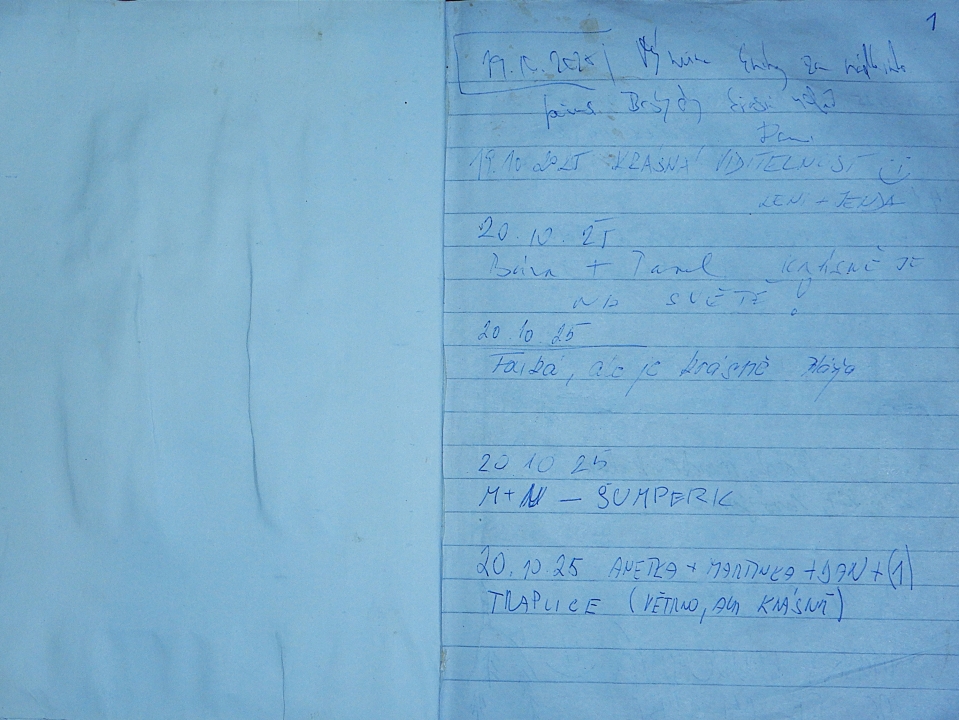 1
19.10.2025 Výměna knihy za
19.10.2025 KRÁSNÁ VIDITELNOST
LENI + JENDA
20.10.25
Bára + Pavel KRÁSNĚ JE
NA SVĚTĚ!
20.10.25
Fouká, ale je krásně Mája
20 10 25
M+N — ŠUMPERK
20.10.25 ANETKA + MARTINKA + DAN + (1)
TRAPLICE (VĚTRNO, ALE KRÁSNĚ)